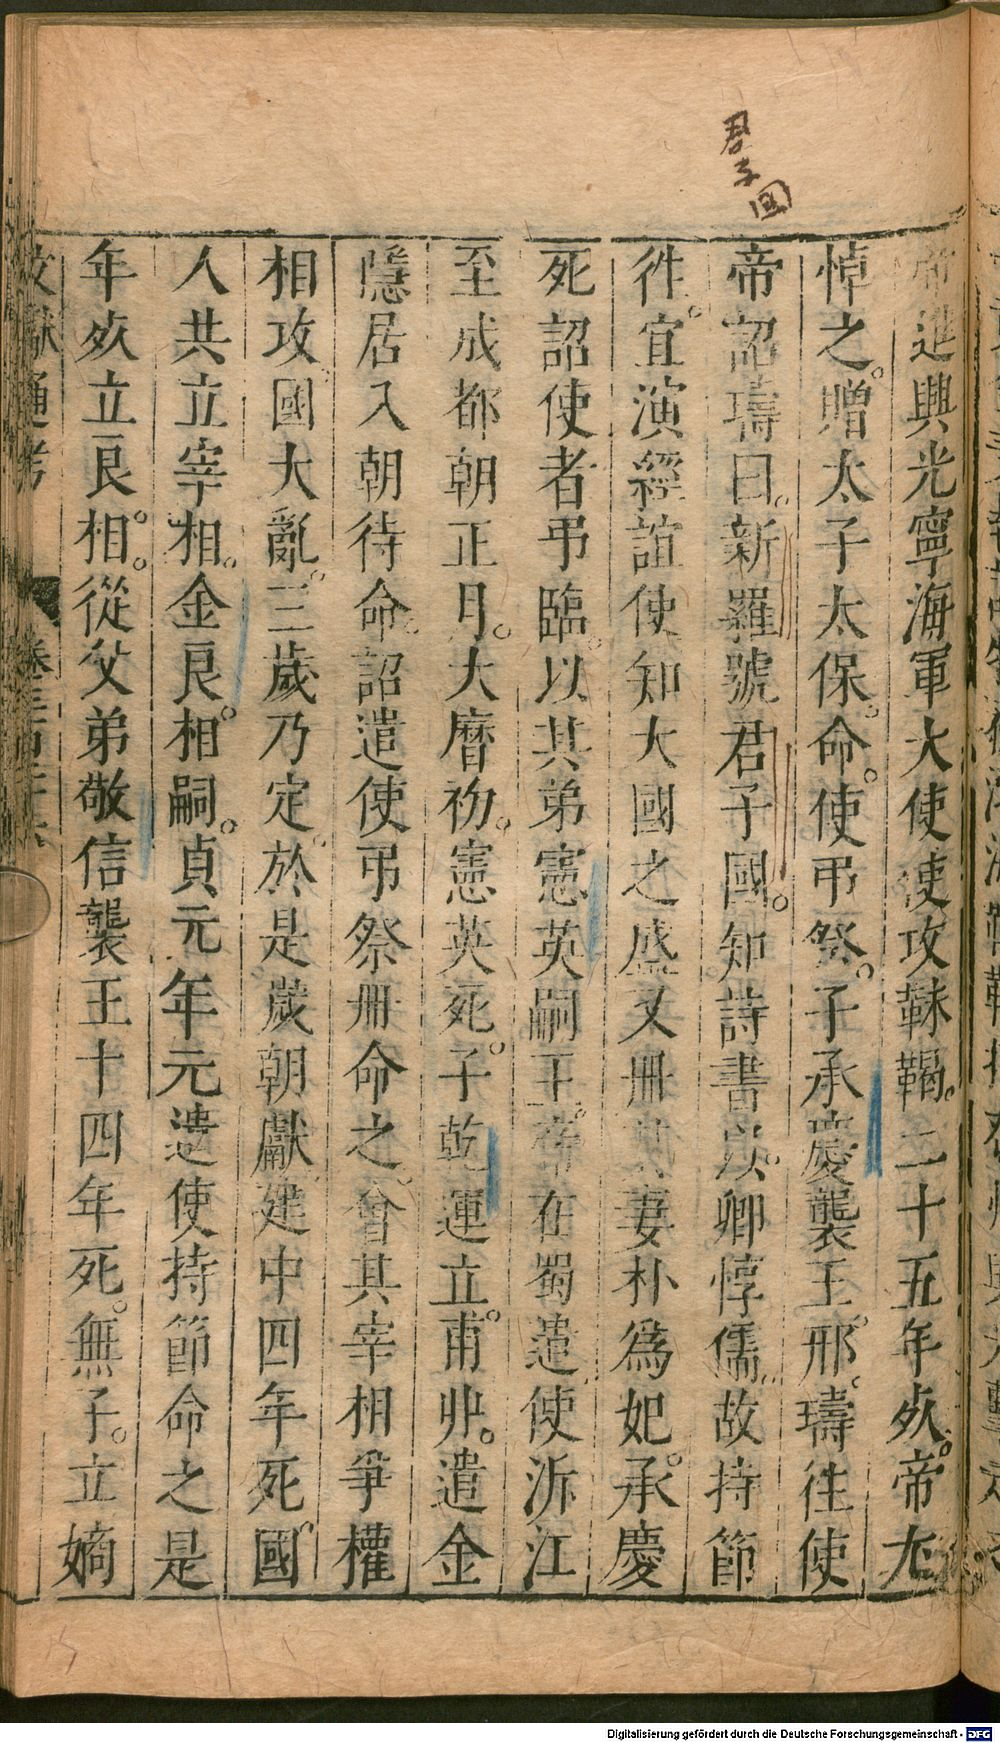 君子国
帝進興光寧海軍大使使攻靺鞨。二十五年死。帝尤
悼之。贈太子太保。命。使弔祭。子承慶襲王。邢。璹往使
帝詔璹曰。新羅號君子國。知詩書。以卿惇儒。故持節
徃。宜演經誼使知大國之盛又冊其妻朴爲妃。承慶
死詔使者弔臨。以其弟憲英嗣王。帝在蜀遣使泝江
至成都朝正月。大曆初。憲英死。子乾運立。甫丱。遣金
隱居入朝待命。詔遣使弔祭冊命之。會其宰相爭權
相攻。國大亂。三歲乃定。於是歲朝獻。建中四年死國
人共立宰相。金良。相嗣。貞元年元遣使持節命之是
年死立良相。從父弟敬信襲王十四年死。無子。立嫡
文獻通考 卷三百二十六
Digitalisierung gefördert durch die Deutsche Forschungsgemeinschaft - DFG